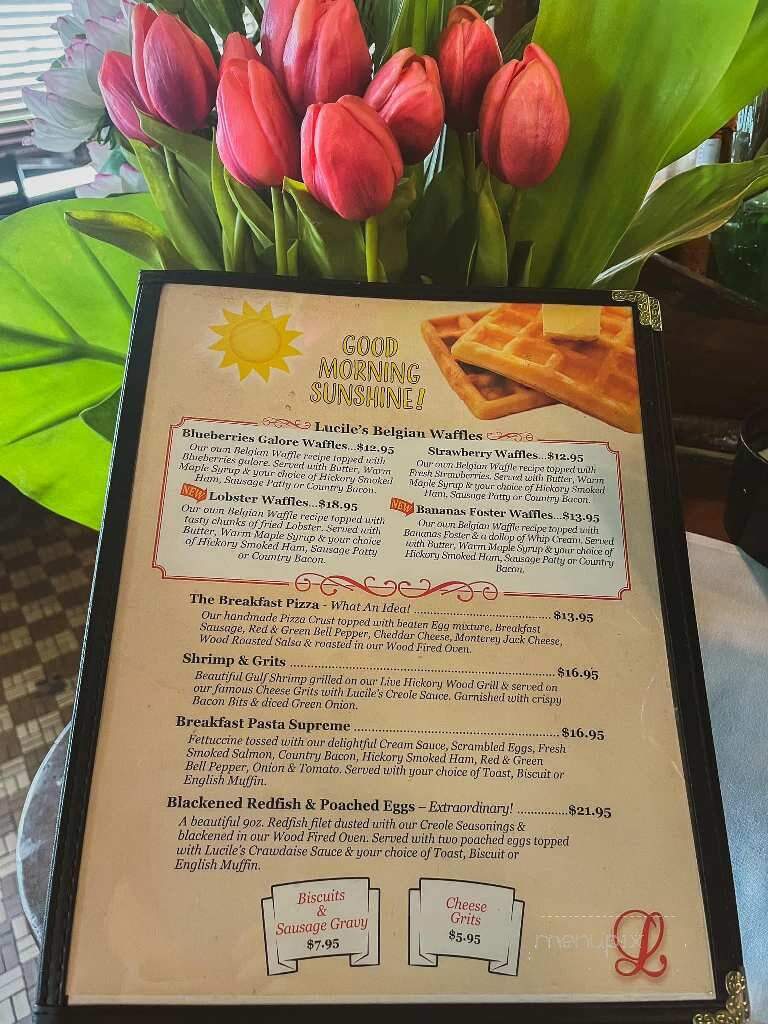 GOOD
MORNING
SUNSHINE!
Lucile's Belgian Waffles
Blueberries Galore Waffles...$12.95
Our own Belgian Waffle recipe topped with
Blueberries galore. Served with Butter, Warm
Maple Syrup & your choice of Hickory Smoked
Ham, Sausage Patty or Country Bacon.
Strawberry Waffles...$12.95
Our own Belgian Waffle recipe topped with
Fresh Strawberries. Served with Butter, Warm
Maple Syrup & your choice of Hickory Smoked
Ham, Sausage Patty or Country Bacon.
NEW Lobster Waffles...$18.95
Our own Belgian Waffle recipe topped with
tasty chunks of fried Lobster. Served with
Butter, Warm Maple Syrup & your choice
of Hickory Smoked Ham, Sausage Patty
or Country Bacon.
NEW Bananas Foster Waffles...$13.95
Our own Belgian Waffle recipe topped with
Bananas Foster & a dollop of Whip Cream. Served
with Butter, Warm Maple Syrup & your choice of
Hickory Smoked Ham, Sausage Patty or Country
Bacon.
The Breakfast Pizza - What An Idea! ................................ $13.95
Our handmade Pizza Crust topped with beaten Egg mixture, Breakfast
Sausage, Red & Green Bell Pepper, Cheddar Cheese, Monterey Jack Cheese,
Wood Roasted Salsa & roasted in our Wood Fired Oven.
Shrimp & Grits ................................................................ $16.95
Beautiful Gulf Shrimp grilled on our Live Hickory Wood Grill & served on
our famous Cheese Grits with Lucile's Creole Sauce. Garnished with crispy
Bacon Bits & diced Green Onion.
Breakfast Pasta Supreme ................................................ $16.95
Fettuccine tossed with our delightful Cream Sauce, Scrambled Eggs, Fresh
Smoked Salmon, Country Bacon, Hickory Smoked Ham, Red & Green
Bell Pepper, Onion & Tomato. Served with your choice of Toast, Biscuit or
English Muffin.
Blackened Redfish & Poached Eggs – Extraordinary! ..............$21.95
A beautiful 9oz. Redfish filet dusted with our Creole Seasonings &
blackened in our Wood Fired Oven. Served with two poached eggs topped
with Lucile's Crawdaise Sauce & your choice of Toast, Biscuit or
English Muffin.
Biscuits
&
Sausage Gravy
$7.95
Cheese
Grits
$5.95
menupix
L